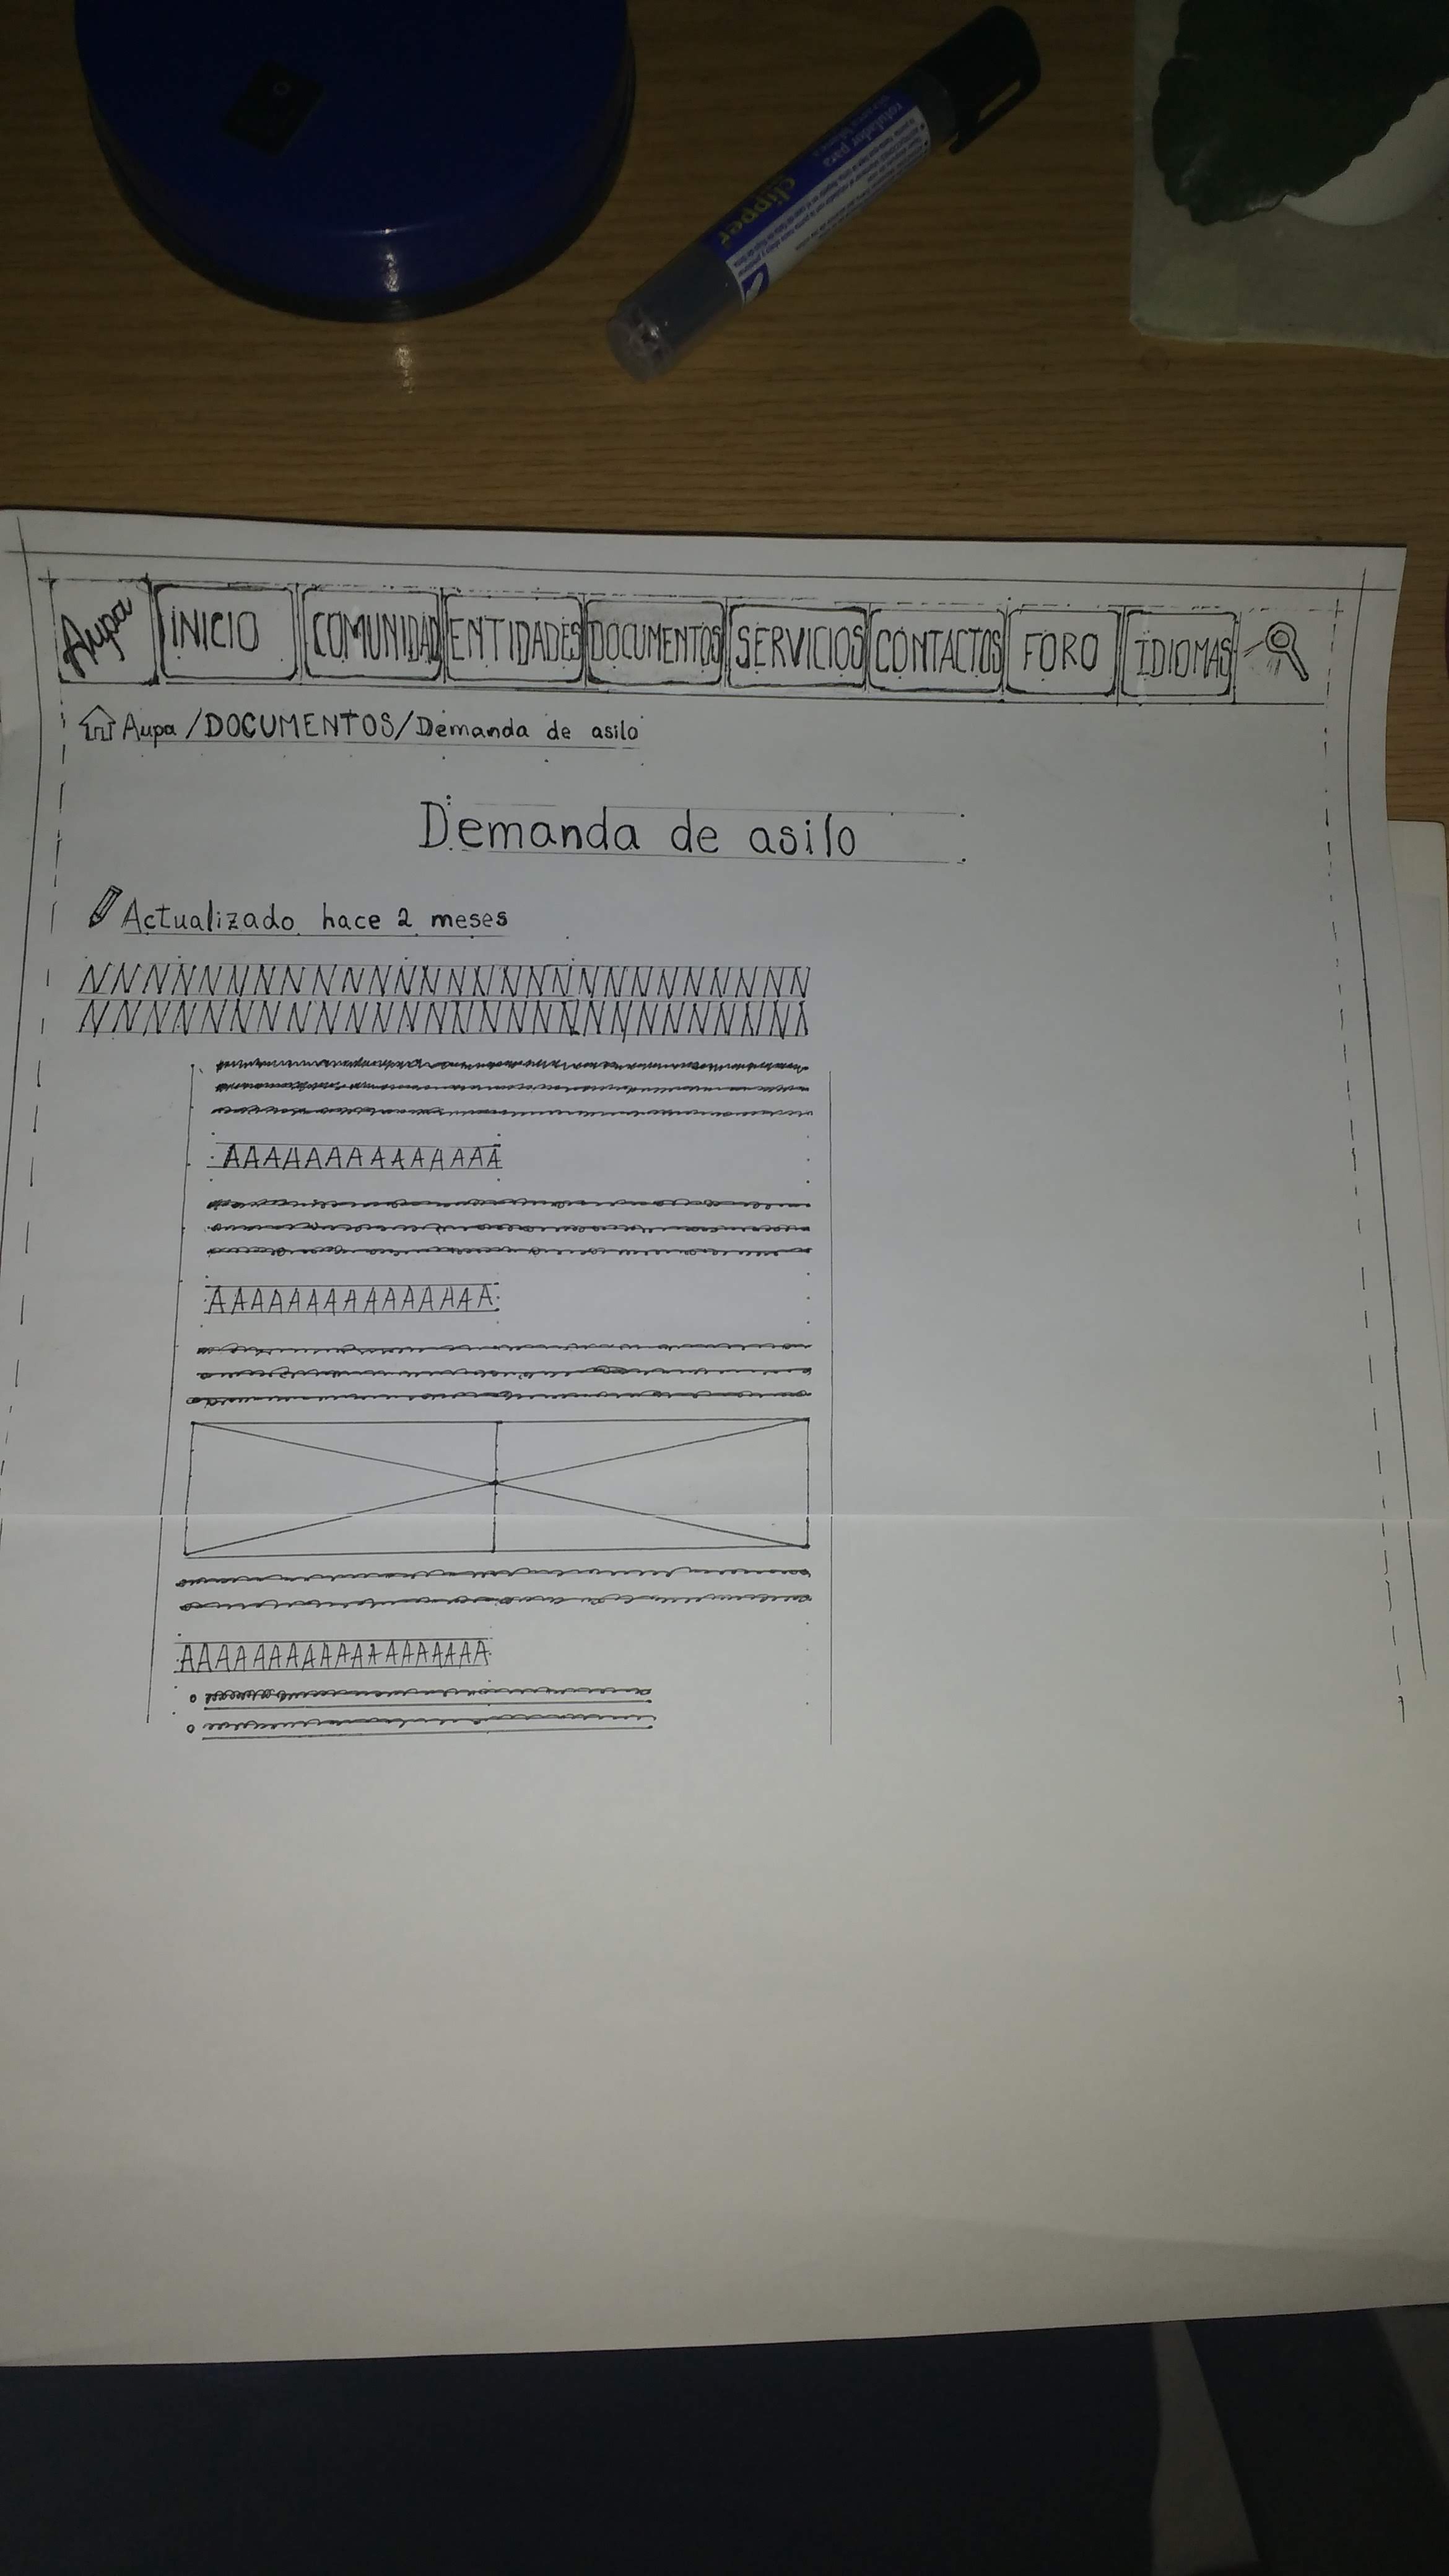 clipper
rotulador para
Aupa INICIO COMUNIDAD ENTIDADES DOCUMENTOS SERVICIOS CONTACTOS FORO IDIOMAS
Aupa /DOCUMENTOS/Demanda de asilo
Demanda de asilo
Actualizado hace 2 meses
NNNNNNNNNNNNNNNNNNNNNNNNNN
NNNNNNNNNNNNNNNNNNNNNNNNNN
AAAAAAAAAAAAAA
AAAAAAAAAAAAAAA
AAAAAAAAAAAAAAAAA